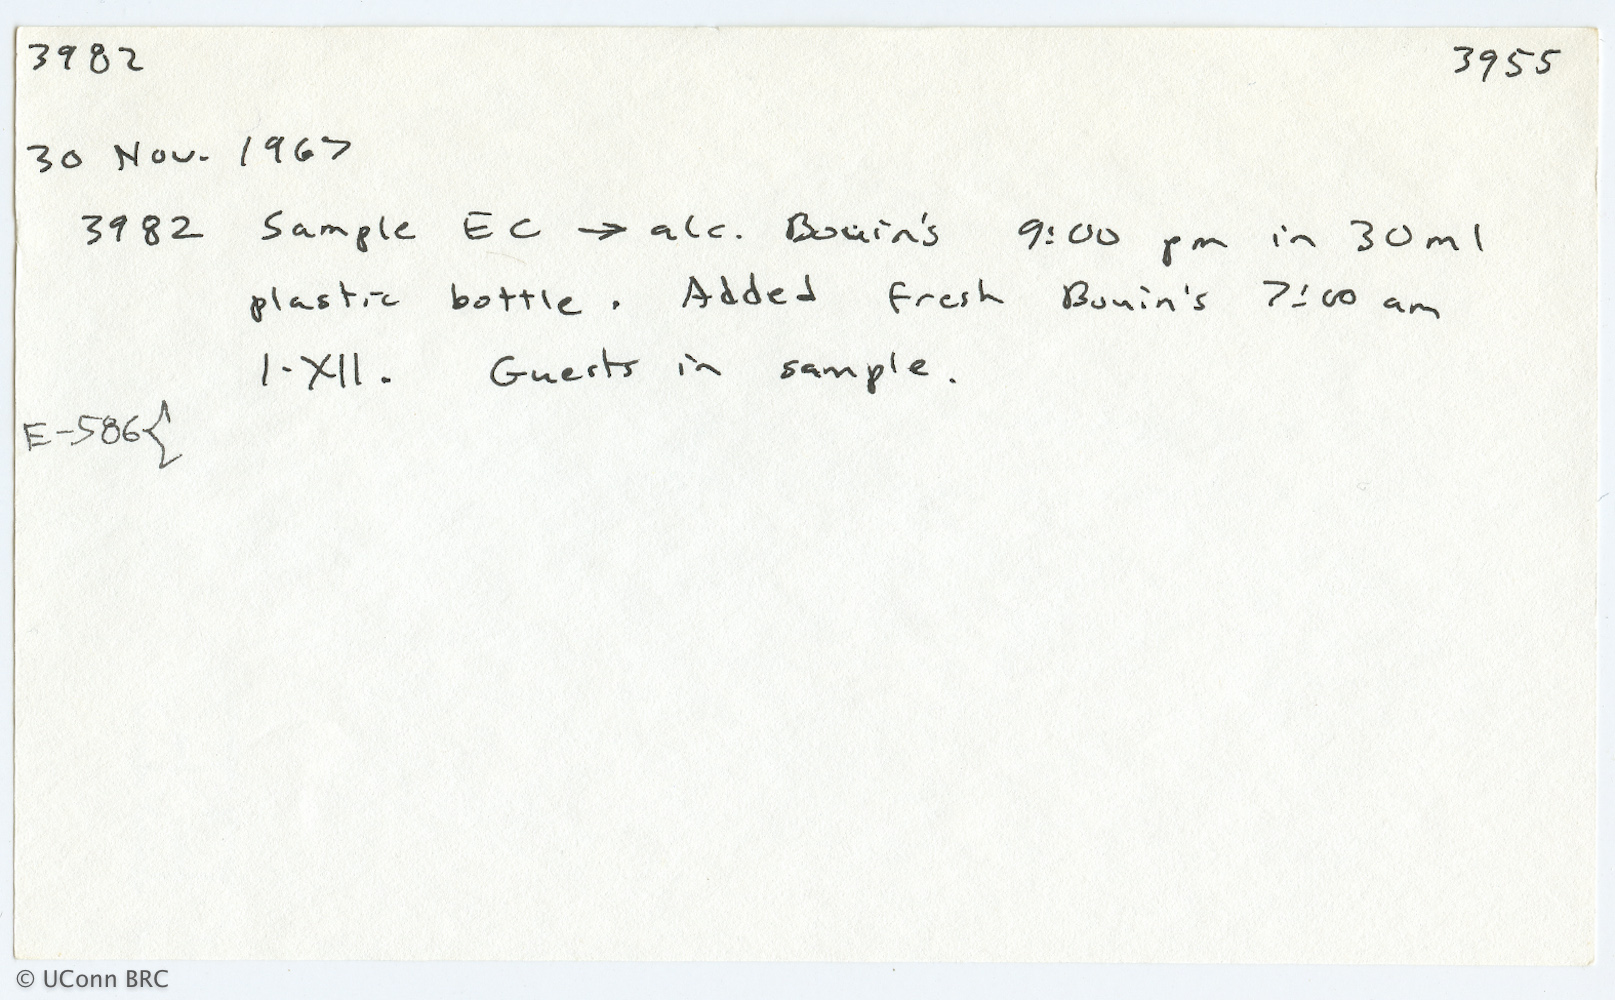 3982 3955
30 Nov. 1967
3982 Sample EC → alc. Bouin's 9:00 pm in 30ml
plastic bottle. Added fresh Bouin's 7:00 am
1-XII. Guests in sample.
E-586{
© UConn BRC